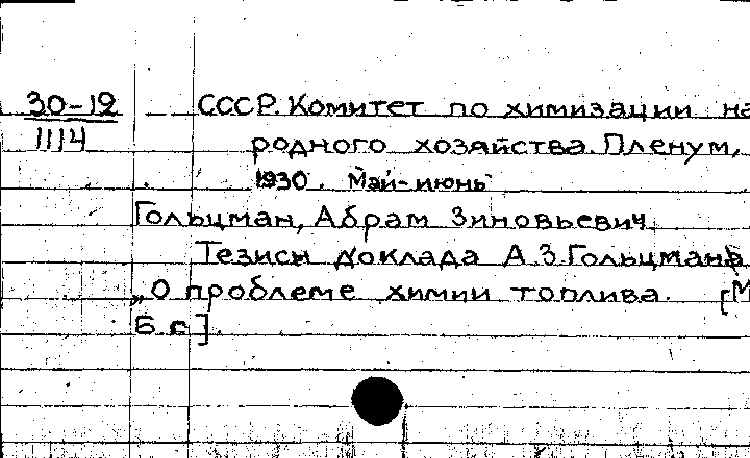 30-12 СССР. Комитет по химизации на
1114 родного хозяйства. Пленум,
1930. Май-июнь
Гольцман, Абрам Зиновьевич.
Тезисы доклада А.З.Гольцмана
„О проблеме химии топлива. [М
Б.г]